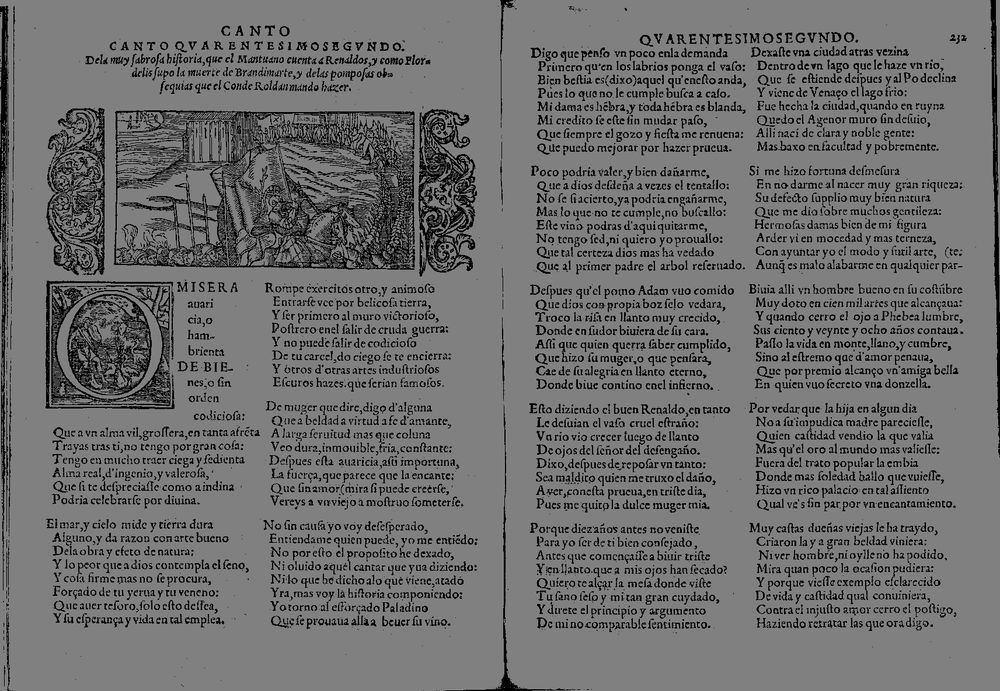 CANTO
CANTO QVARENTESIMOSEGVNDO.
Dela muy sabrosa historia, que el Mantuano cuenta a Renaldos, y como Flor
delis supo la muerte de Brandimarte, y delas pomposas ob-
sequias que el Conde Roldan mando hazer.
O MISERA
auari
cia, o
ham-
brienta
DE BIE-
nes, o sin
orden
codiciosa:
Que a vn alma vil, grossera, en tanta afrẽta
Trayas tras ti, no tengo por gran cosa:
Tengo en mucho traer ciega y sedienta
Alma real, d'ingenio, y valerosa,
Que si te despreciasse como a indina
Podria celebrarse por diuina.
El mar, y cielo mide y tierra dura
Alguno, y da razon con arte bueno
Dela obra y efeto de natura:
Y lo peor que a dios contempla el seno,
Y cosa firme mas no se procura,
Forçado de tu yerua y tu veneno:
Que auer tesoro, solo esto dessea,
Y su esperança y vida en tal emplea.
Rompe exercitos otro, y animoso
Entrar se vee por belicosa tierra,
Y ser primero al muro victorioso,
Postrero en el salir de cruda guerra:
Y no puede salir de codicioso
De tu carcel, do ciego se te encierra:
Y otros d'otras artes industriosos
Escuros hazes, que serian famosos.
De muger que dire, digo d'alguna
Que a beldad a virtud a fe d'amante,
A larga seruitud mas que coluna
Veo dura, inmouible, fria, constante:
Despues esta auaricia, assi importuna,
La fuerça, que parece que la encante:
Que sin amor (mira si puede creerse,
Vereys a vn viejo a mostruo someterse.
No sin causa yo voy desesperado,
Entiendame quien puede, yo me entiẽdo:
No por esto el proposito he dexado,
Ni oluido aquel cantar que yua diziendo:
Ni lo que he dicho alo que viene, atado
Yra, mas voy la historia componiendo:
Yo torno al esforçado Paladino
Que se prouaua alla a beuer su vino.
QVARENTESIMOSEGVNDO. 232
Digo que penso vn poco en la demanda
Primero qu'en los labrios ponga el vaso:
Bien bestia es (dixo) aquel qu'en esto anda,
Pues lo que no le cumple busca a caso.
Mi dama es hẽbra, y toda hẽbra es blanda,
Mi credito se este sin mudar paso,
Que siempre el gozo y fiesta me renueua:
Que puedo mejorar por hazer prueua.
Poco podria valer, y bien dañarme,
Que a dios desdeña a vezes el tentallo:
No se si acierto, ya podria engañarme,
Mas lo que no te cumple, no buscallo:
Este vino podras d'aqui quitarme,
No tengo sed, ni quiero yo prouallo:
Que tal certeza dios mas ha vedado
Que al primer padre el arbol reseruado.
Despues qu'el pomo Adam vuo comido
Que dios con propia boz selo vedara,
Troco la risa en llanto muy crecido,
Donde en sudor biuiera de su cara.
Assi que quien querra saber cumplido,
Que hizo su muger, o que pensara,
Cae de su alegria en llanto eterno,
Donde biue contino en el infierno.
Esto diziendo el buen Renaldo, en tanto
Le desuian el vaso cruel estraño:
Vn rio vio crecer luego de llanto
De ojos del señor del desengaño.
Dixo, despues de reposar vn tanto:
Sea maldito quien me truxo el daño,
Ayer, con esta prueua, en triste dia,
Pues me quito la dulce muger mia.
Porque diez años antes no veniste
Para yo ser de ti bien consejado,
Antes que començasse a biuir triste
Y en llanto que a mis ojos han secado?
Quiero te alçar la mesa donde viste
Tu sano seso y mi tan gran cuydado,
Y direte el principio y argumento
De mi no comparable sentimiento.
Dexaste vna ciudad atras vezina
Dentro de vn lago que le haze vn rio,
Que se estiende despues y al Po declina
Y viene de Venaço el lago frio:
Fue hecha la ciudad, quando en ruyna
Quedo el Agenor muro sin desuio,
Alli naci de clara y noble gente:
Mas baxo en facultad y pobremente.
Si me hizo fortuna desmesura
En no darme al nacer muy gran riqueza:
Su defecto supplio muy bien natura
Que me dio sobre muchos gentileza:
Hermosas damas bien de mi figura
Arder vi en mocedad y mas terneza,
Con ayuntar yo el modo y sutil arte, (te:
Aunq̃ es malo alabarme en qualquier par-
Biuia alli vn hombre bueno en su costũbre
Muy doto en cien mil artes que alcançaua:
Y quando cerro el ojo a Phebea lumbre,
Sus ciento y veynte y ocho años contaua.
Passo la vida en monte, llano, y cumbre,
Sino al estremo que d'amor penaua,
Que por premio alcanço vn'amiga bella
En quien vuo secreto vna donzella.
Por vedar que la hija en algun dia
No a su impudica madre pareciesse,
Quien castidad vendio la que valia
Mas qu'el oro al mundo mas valiesse:
Fuera del trato popular la embia
Donde mas soledad hallo que vuiesse,
Hizo vn rico palacio en tal assiento
Qual ve's sin par por vn encantamiento.
Muy castas dueñas viejas le ha traydo,
Criaron la y a gran beldad viniera:
Ni ver hombre, ni oylle no ha podido,
Mira quan poco la ocasion pudiera:
Y porque viesse exemplo esclarecido
De vida y castidad qual conuiniera,
Contra el injusto amor cerro el postigo,
Haziendo retratar las que ora digo.